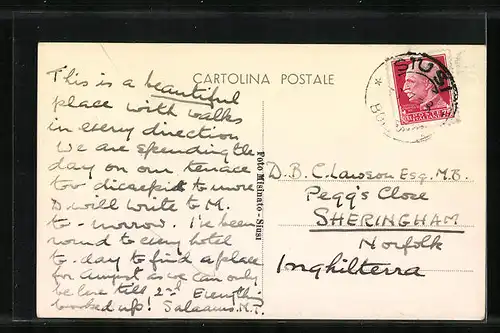 CARTOLINA POSTALE
SIUSI
This is a beautiful
place with walks
in every direction
We are spending the
day on our terrace
too to move
D will write to M.
to-morrow. I've been
round to every hotel
to-day to find a place
for August as we can only
be here till 2nd Everything
booked up! Salaams M.P.
Foto Misinato - Siusi
D.B.C. Lawson Esq. M.B.
Pegg's Close
SHERINGHAM
Norfolk
Inghilterra